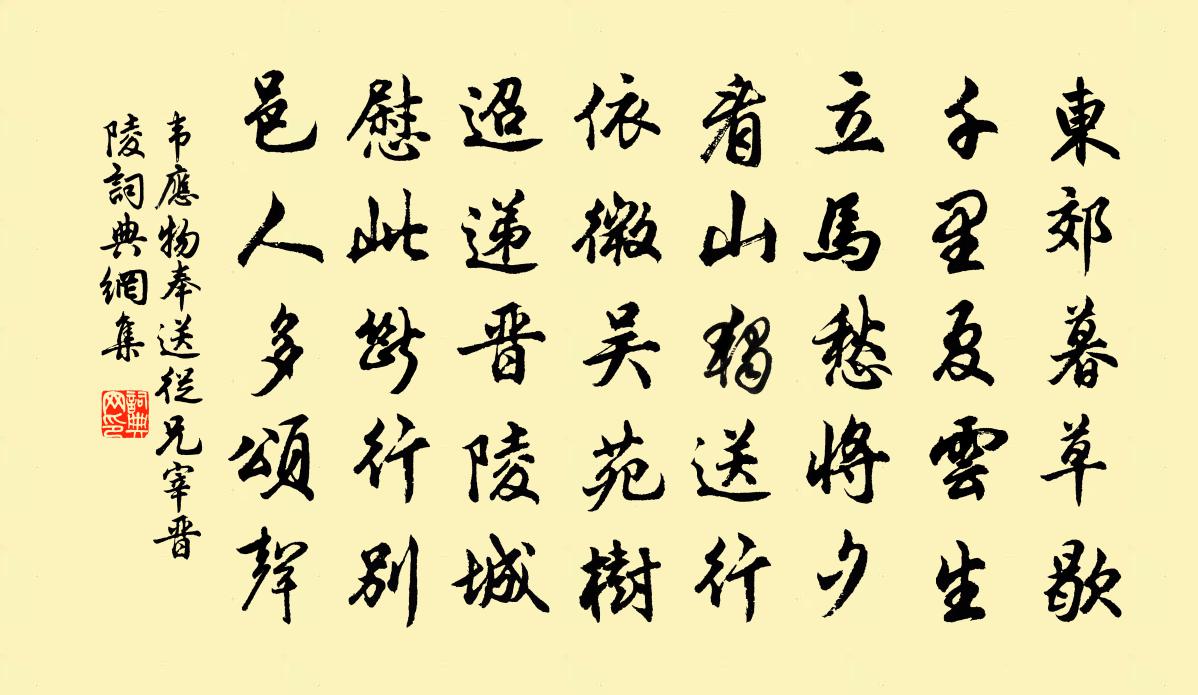 東郊暮草歇
千里夏雲生
立馬愁將夕
看山獨送行
依微吳苑樹
迢遞晉陵城
慰此斷行別
邑人多頌聲
韦應物奉送從兄宰晋
陵詞典網集
詞典网印